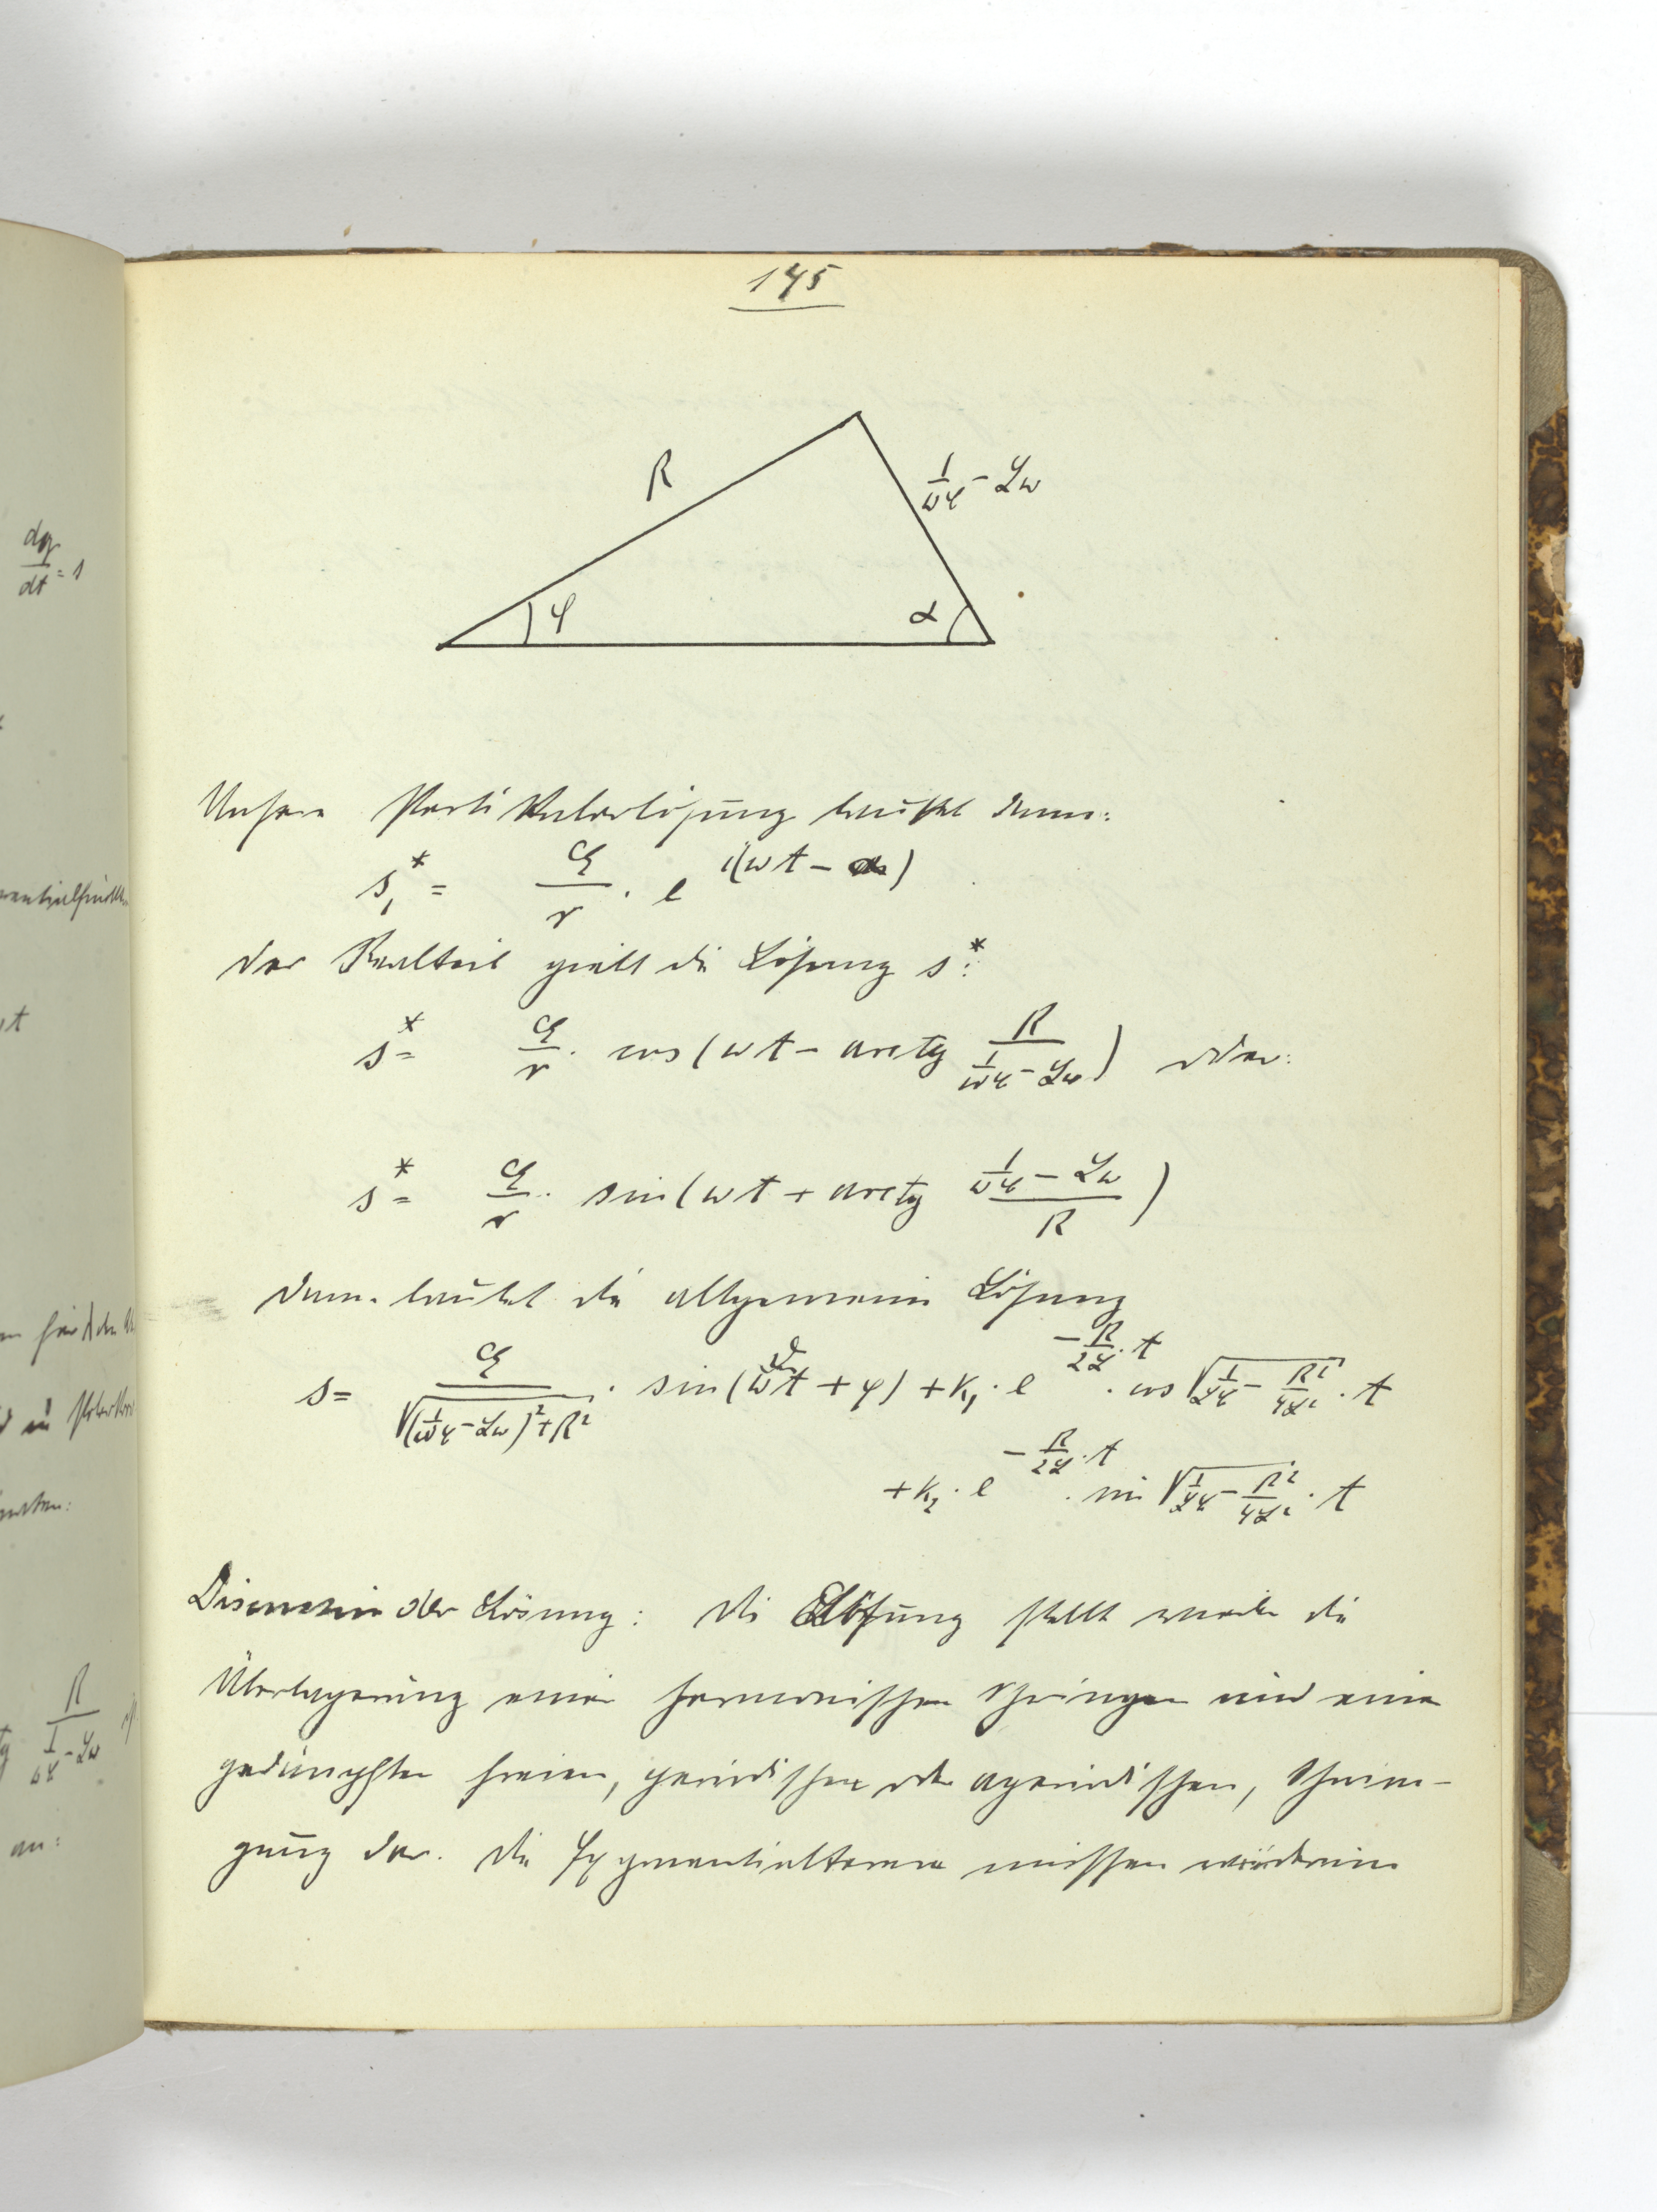 145
R
1/ωC - Lω
φ
α
Unsere Partikulärlösung lautet dann:
s₁* = a/r · e^{i(ωt - α)}
Der Realteil gibt die Lösung s*:
s* = a/r · cos(ωt - arctg R/(1/ωC - Lω)) oder:
s* = a/r · sin(ωt + arctg (1/ωC - Lω)/R)
Dann lautet die allgemeine Lösung
s = a/√((1/ωC - Lω)² + R²) · sin(ωt + φ) + k₁ · e^{-R/2L · t} · cos √(1/LC - R²/4L²) · t
+ k₂ · e^{-R/2L · t} · sin √(1/LC - R²/4L²) · t
Discussion der Lösung: Die Lösung stellt die
Überlagerung einer harmonischen und einer
gedämpften freien, periodischen oder aperiodischen, Schwin-
gung dar. Die Exponentialterme müssen
dq/dt = 1
R
1/ωC - Lω
an: